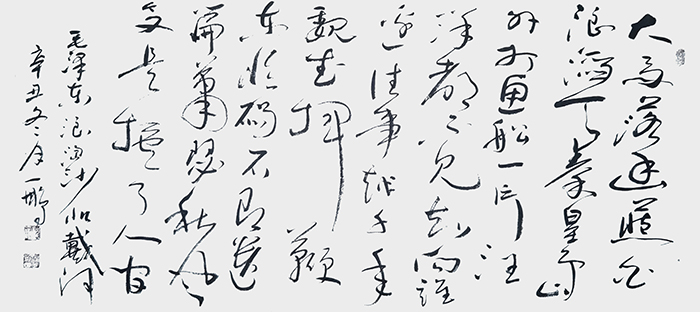 大雨落幽燕白
浪滔天秦皇島
外打魚船一片汪
洋都不見知向誰
邊往事越千年
魏武揮鞭
东临碣石有遺
篇蕭瑟秋风
今又是換了人间
毛澤东浪淘沙北戴河
辛丑冬月一鵬